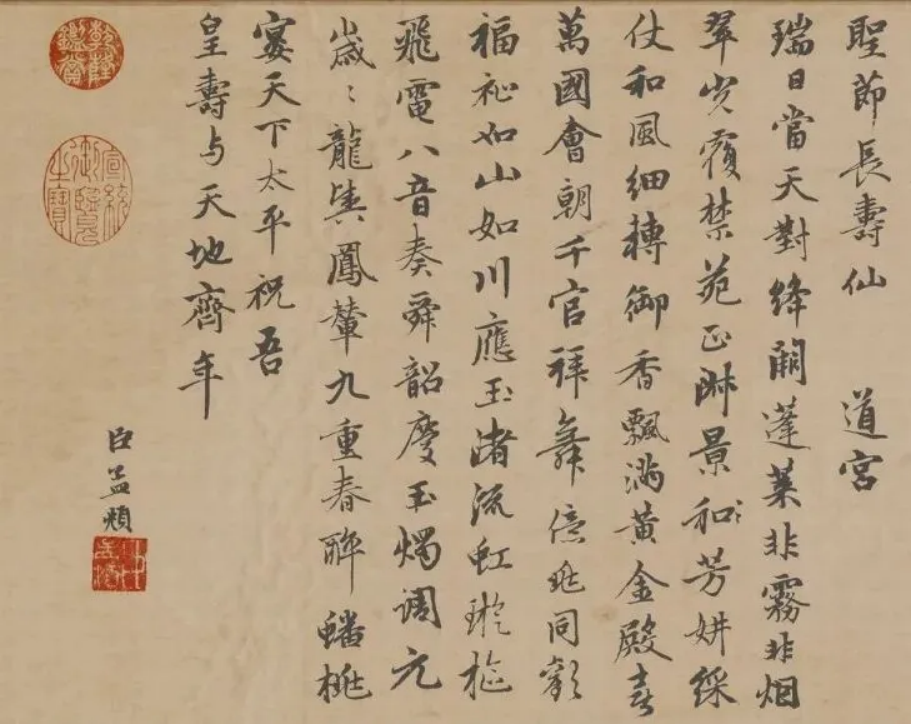 聖節長壽仙 道宮
瑞日當天對絳闕蓬萊非霧非烟
翠光覆禁苑正淑景和芳妍綵
仗和風細轉御香飄滿黃金殿喜
萬國會朝千官拜舞億兆同歡
福祉如山如川應玉渚流虹璇樞
飛電八音奏舜韶慶玉燭調元
歲〻龍輿鳳輦九重春醉蟠桃
宴天下太平祝吾
皇壽与天地齊年
臣孟頫
乾隆鑑賞
宣統御覽之寶